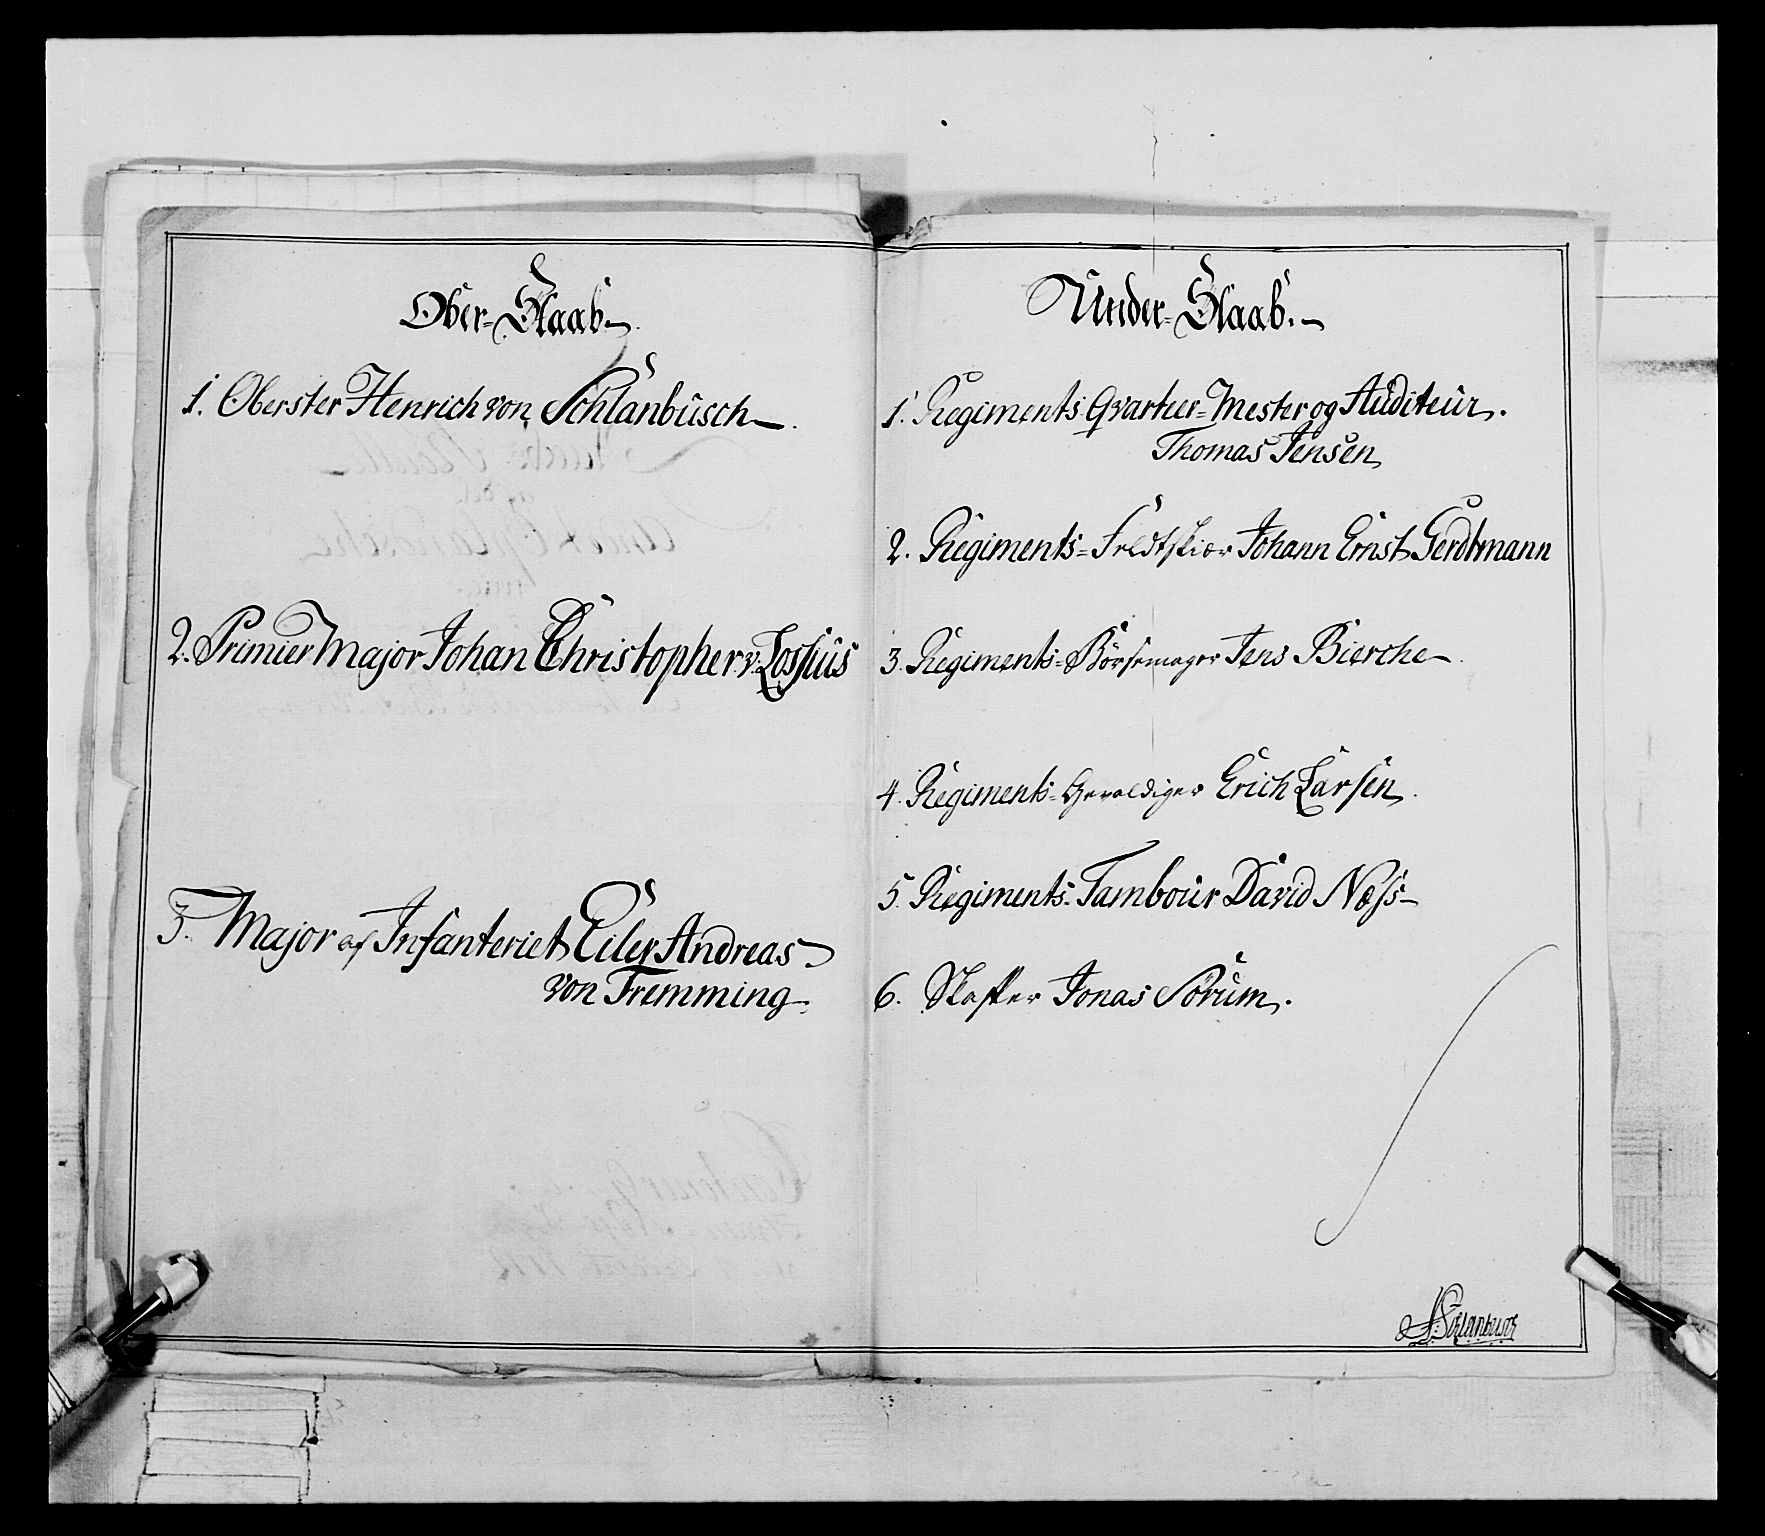 Ober-Staab.
1. Oberster Henrich von Schlanbusch.
2. Primier Major Johan Christopher v. Lossius
3. Major af Infanteriet Eiler Andreas
von Tremming.
Under-Staab.
1. Regiments Qvarteer-Mester og Auditeur.
Thomas Jensen
2. Regiments-Feldtskier Johann Ernst Gerdtmann
3. Regiments-Börsemager Jens Bierche.
4. Regiments-Gevaldiger Erich Larsen.
5. Regiments-Tambour David Næss
6. Skaffter Jonas Sörum.
HSchlanbusch